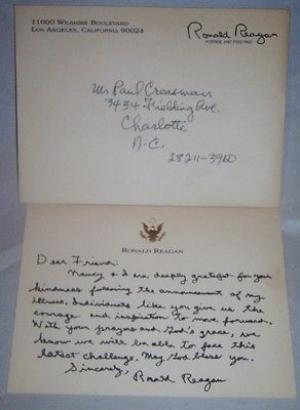 11000 WILSHIRE BOULEVARD
LOS ANGELES, CALIFORNIA 90024
Ronald Reagan
POSTAGE AND FEES PAID
Mr Paul Creasman
3434 Fielding Ave.
Charlotte
N.C.
28211-3960
RONALD REAGAN
Dear Friend:
Nancy & I are deeply grateful for your
kindness following the announcement of my
illness. Individuals like you give us the
courage and inspiration to move forward.
With your prayers and God's grace, we
know we will be able to face this
latest challenge. May God bless you.
Sincerely,
Ronald Reagan